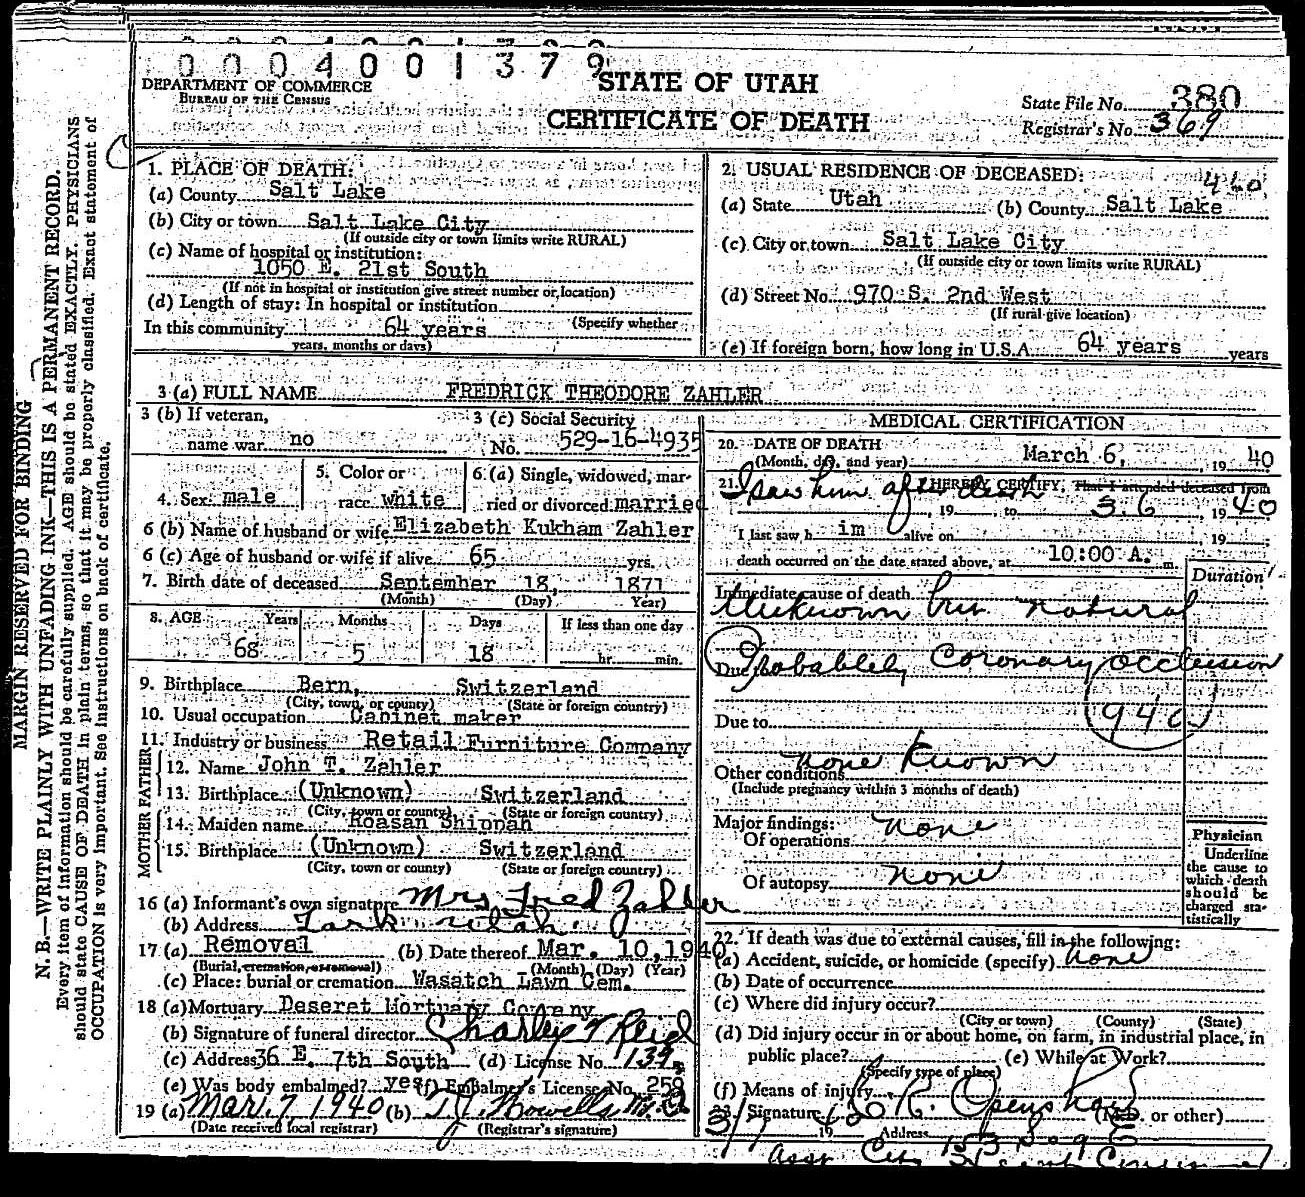 0004001379
DEPARTMENT OF COMMERCE
BUREAU OF THE CENSUS
STATE OF UTAH
CERTIFICATE OF DEATH
State File No. 380
Registrar's No. 369
MARGIN RESERVED FOR BINDING
N. B.—WRITE PLAINLY WITH UNFADING INK—THIS IS A PERMANENT RECORD.
Every item of information should be carefully supplied. AGE should be stated EXACTLY. PHYSICIANS
should state CAUSE OF DEATH in plain terms, so that it may be properly classified. Exact statement of
OCCUPATION is very important. See instructions on back of certificate.
1. PLACE OF DEATH:
(a) County Salt Lake
(b) City or town Salt Lake City
(If outside city or town limits write RURAL)
(c) Name of hospital or institution:
1050 E. 21st South
(If not in hospital or institution give street number or location)
(d) Length of stay: In hospital or institution
(Specify whether
In this community 64 years
years, months or days)
2. USUAL RESIDENCE OF DECEASED:
(a) State Utah (b) County Salt Lake
(c) City or town Salt Lake City
(If outside city or town limits write RURAL)
(d) Street No. 970 S. 2nd West
(If rural give location)
(e) If foreign born, how long in U.S.A. 64 years years
3 (a) FULL NAME FREDRICK THEODORE ZAHLER
3 (b) If veteran,
name war no
3 (c) Social Security
No. 529-16-4935
4. Sex male
5. Color or
race white
6. (a) Single, widowed, mar-
ried or divorced married
6 (b) Name of husband or wife Elizabeth Kukham Zahler
6 (c) Age of husband or wife if alive 65 yrs.
7. Birth date of deceased September 18, 1871
(Month) (Day) (Year)
8. AGE Years Months Days If less than one day
68 5 18 hr. min.
9. Birthplace Bern, Switzerland
(City, town, or county) (State or foreign country)
10. Usual occupation Cabinet maker
11. Industry or business Retail Furniture Company
FATHER
12. Name John T. Zahler
13. Birthplace (Unknown) Switzerland
(City, town or county) (State or foreign country)
MOTHER
14. Maiden name Roasan Shippah
15. Birthplace (Unknown) Switzerland
(City, town or county) (State or foreign country)
16 (a) Informant's own signature Mrs Fred Zahler
(b) Address Lark Utah
17 (a) Removal (b) Date thereof Mar. 10, 1940
(Burial, cremation, or removal) (Month) (Day) (Year)
(c) Place: burial or cremation Wasatch Lawn Cem.
18 (a) Mortuary Deseret Mortuary Company
(b) Signature of funeral director Charley T Reid
(c) Address 36 E. 7th South (d) License No. 139
(e) Was body embalmed? yes (f) Embalmer's License No. 259
19 (a) Mar. 7 1940 (b) T. J. Howells M.D.
(Date received local registrar) (Registrar's signature)
MEDICAL CERTIFICATION
20. DATE OF DEATH
(Month, day, and year) March 6, 1940
21. I HEREBY CERTIFY, That I attended deceased from
I saw him after death
, 19 to 3.6 1940
I last saw h im alive on , 19 ;
death occurred on the date stated above, at 10:00 A. m.
Duration
Immediate cause of death
Unknown but natural
Due to Probablely Coronary occlusion
Due to 94c
Other conditions none known
(Include pregnancy within 3 months of death)
Major findings:
Of operations none
Of autopsy none
Physician
Underline
the cause to
which death
should be
charged sta-
tistically
22. If death was due to external causes, fill in the following:
(a) Accident, suicide, or homicide (specify) none
(b) Date of occurrence
(c) Where did injury occur?
(City or town) (County) (State)
(d) Did injury occur in or about home, on farm, in industrial place, in
public place? (e) While at Work?
(Specify type of place)
(f) Means of injury
23. Signature R. Openshaw (M.D. or other)
3/7 19 40 Address 153 So 9 E
Asst City